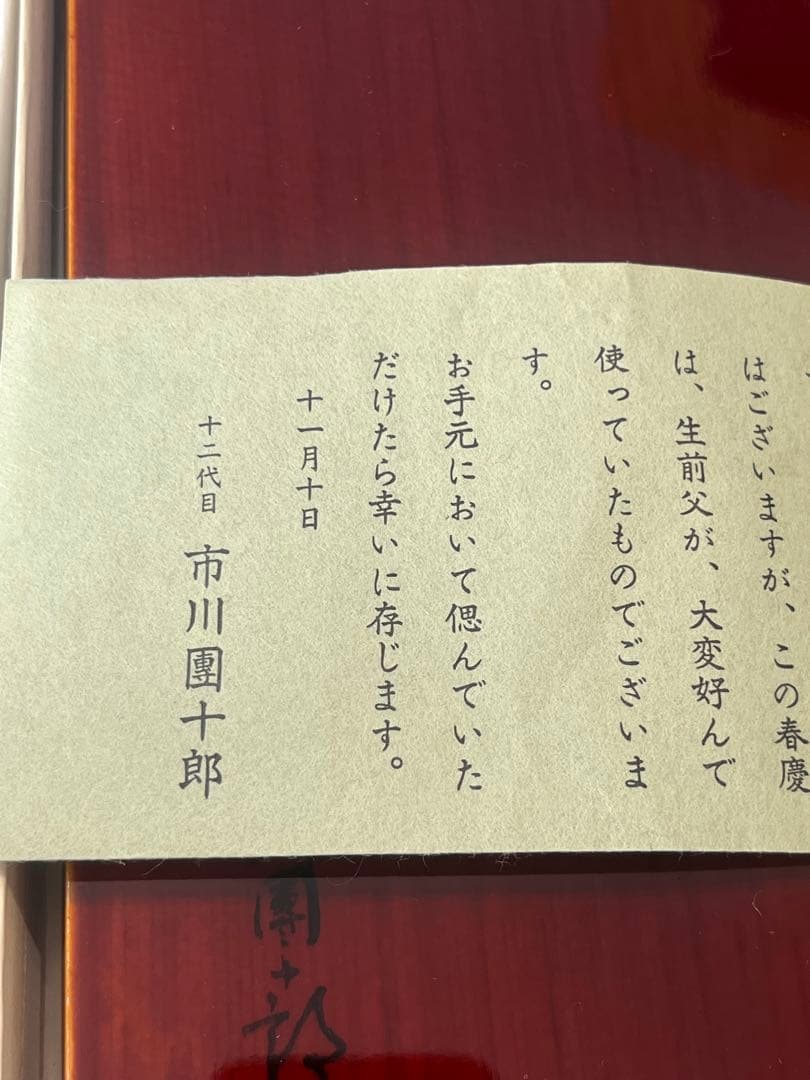 はございますが、この春慶
は、生前父が、大変好んで
使っていたものでございま
す。
お手元において偲んでいた
だけたら幸いに存じます。
十一月十日
十二代目 市川團十郎
團十郎